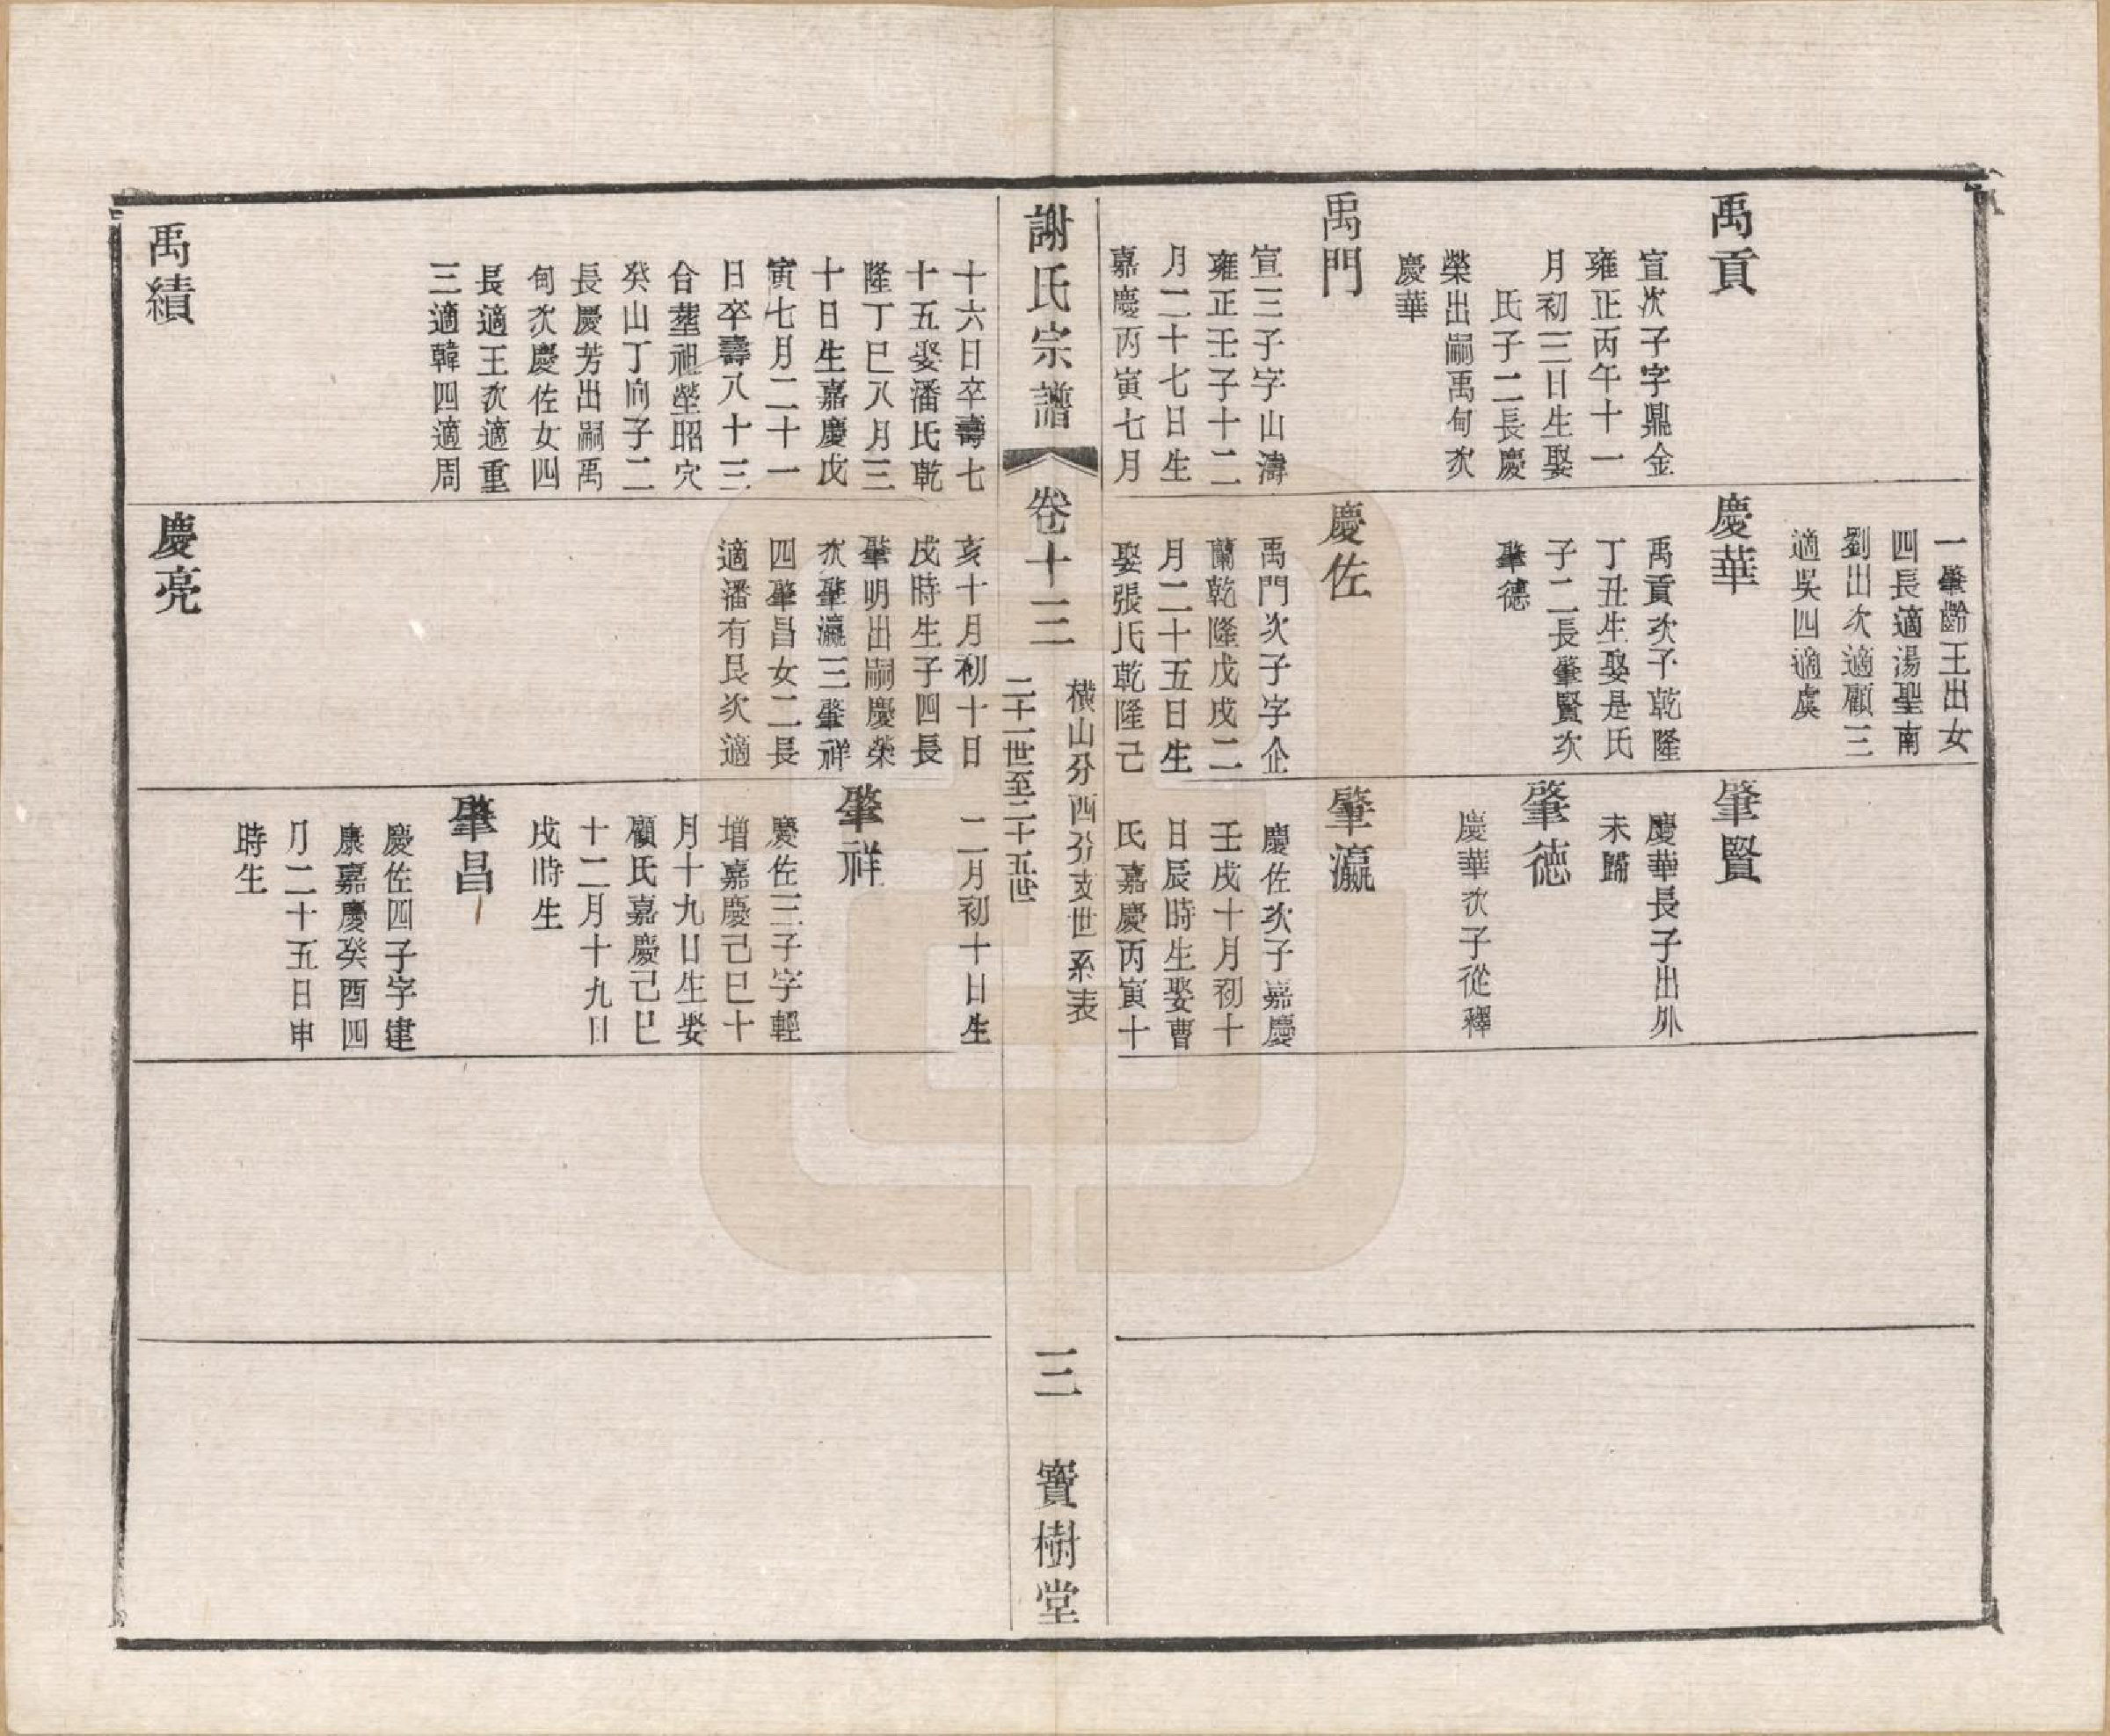 禹貢
宣次子字鼎金
雍正丙午十一
月初三日生娶
氏子二長慶
榮出嗣禹甸次
慶華
禹門
宣三子字山濤
雍正壬子十二
月二十七日生
嘉慶丙寅七月
一肇齡王出女
四長適湯聖南
劉出次適顧三
適吳四適虞
慶華
禹貢次子乾隆
丁丑生娶是氏
子二長肇賢次
肇德
慶佐
禹門次子字企
蘭乾隆戊戌二
月二十五日生
娶張氏乾隆己
肇賢
慶華長子出外
未歸
肇德
慶華次子從釋
肇瀛
慶佐次子嘉慶
壬戌十月初十
日辰時生娶曹
氏嘉慶丙寅十
謝氏宗譜
卷十三
橫山分西分支世系表
二十一世至二十五世
三
寶樹堂
十六日卒壽七
十五娶潘氏乾
隆丁巳八月三
十日生嘉慶戊
寅七月二十一
日卒壽八十三
合塟祖塋昭穴
癸山丁向子二
長慶芳出嗣禹
甸次慶佐女四
長適王次適重
三適韓四適周
禹績
亥十月初十日
戌時生子四長
肇明出嗣慶榮
次肇瀛三肇祥
四肇昌女二長
適潘有良次適
慶亮
二月初十日生
肇祥
慶佐三子字輕
增嘉慶己巳十
月十九日生娶
顧氏嘉慶己巳
十二月十九日
戌時生
肇昌
慶佐四子字建
康嘉慶癸酉四
月二十五日申
時生